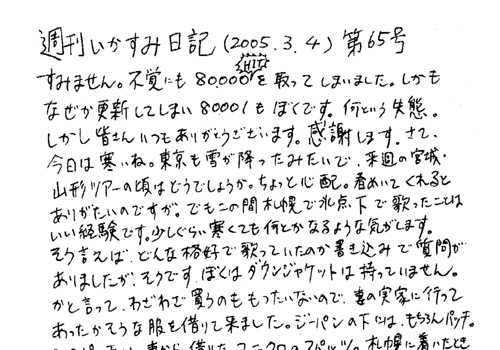 週刊いかすみ日記 (2005.3.4) 第65号
すみません。不覚にも 80.000 HIT を取ってしまいました。しかも
なぜか更新してしまい 80001も ぼくです。何という失態。
しかし皆さんいつもありがとうございます。感謝します。さて、
今日は寒いね。東京も雪が降ったみたいで、来週の宮城・
山形ツアーの頃はどうでしょうか。ちょっと心配。春めいてくれると
ありがたいのですが。でもこの間札幌で氷点下で歌ったことは
いい経験です。少しぐらい寒くても何とかなるような気がします。
そう言えば、どんな格好で歌っていたのか書き込みで質問が
ありましたが、そうです、ぼくはダウンジャケットは持っていません。
かと言って、わざわざ買うのももったいないので、妻の実家に行って
あったかそうな服を借りて来ました。ジーパンの下には、もちろんパッチ。
妻から借りた ユニクロの 札幌に着いたとき